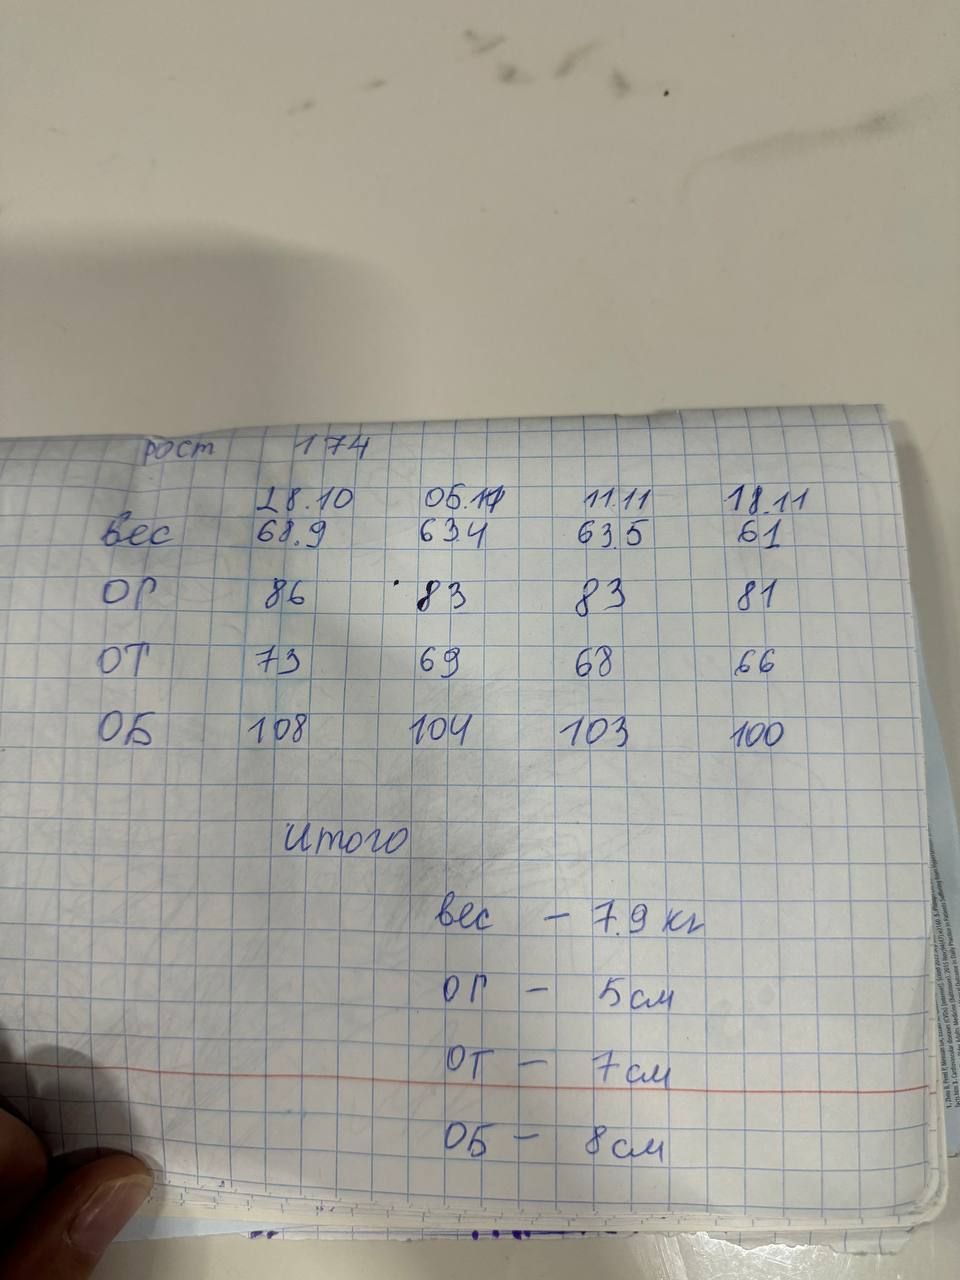 рост 174
28.10 05.11 11.11 18.11
Вес 68.9 63.4 63.5 61
ОГ 86 83 83 81
ОТ 73 69 68 66
ОБ 108 104 103 100
Итого
вес – 7.9 кг
ОГ – 5 см
ОТ – 7 см
ОБ – 8 см